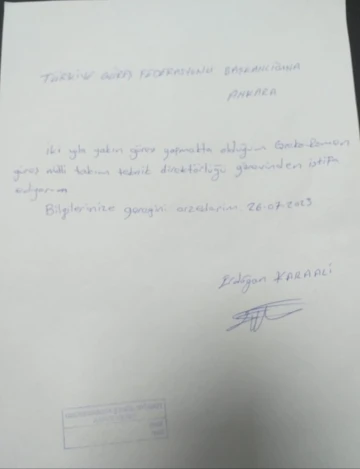 TÜRKİYE GÜREŞ FEDERASYONU BAŞKANLIĞINA
ANKARA
iki yıla yakın görev yapmakta olduğum Greko-Romen
güreş milli takım teknik direktörlüğü görevinden istifa
ediyorum
Bilgilerinize gereğini arzederim. 26.07.2023
Erdoğan KARAALİ